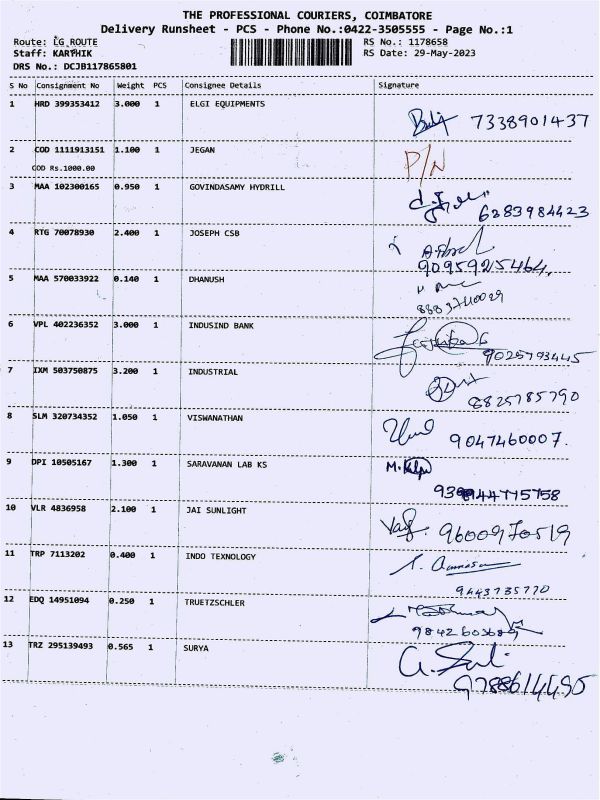 THE PROFESSIONAL COURIERS, COIMBATORE
Delivery Runsheet - PCS - Phone No.:0422-3505555 - Page No.:1
Route: LG ROUTE RS No.: 1178658
Staff: KARTHIK RS Date: 29-May-2023
DRS No.: DCJB117865801
S No Consignment No Weight PCS Consignee Details Signature
1 HRD 399353412 3.000 1 ELGI EQUIPMENTS
7338901437
2 COD 1111913151 1.100 1 JEGAN P/N
COD Rs.1000.00
3 MAA 102300165 0.950 1 GOVINDASAMY HYDRILL
6283984423
4 RTG 70078930 2.400 1 JOSEPH CSB
9095925464
5 MAA 570033922 0.140 1 DHANUSH
8883740029
6 VPL 402236352 3.000 1 INDUSIND BANK
9025793445
7 IXM 503750875 3.200 1 INDUSTRIAL
8825785790
8 SLM 320734352 1.050 1 VISWANATHAN
9047460007.
9 DPI 10505167 1.300 1 SARAVANAN LAB KS
10 VLR 4836958 2.100 1 JAI SUNLIGHT
9600970519
11 TRP 7113202 0.400 1 INDO TEXNOLOGY
9443735770
12 EDQ 14951094 0.250 1 TRUETZSCHLER
13 TRZ 295139493 0.565 1 SURYA
9788614495